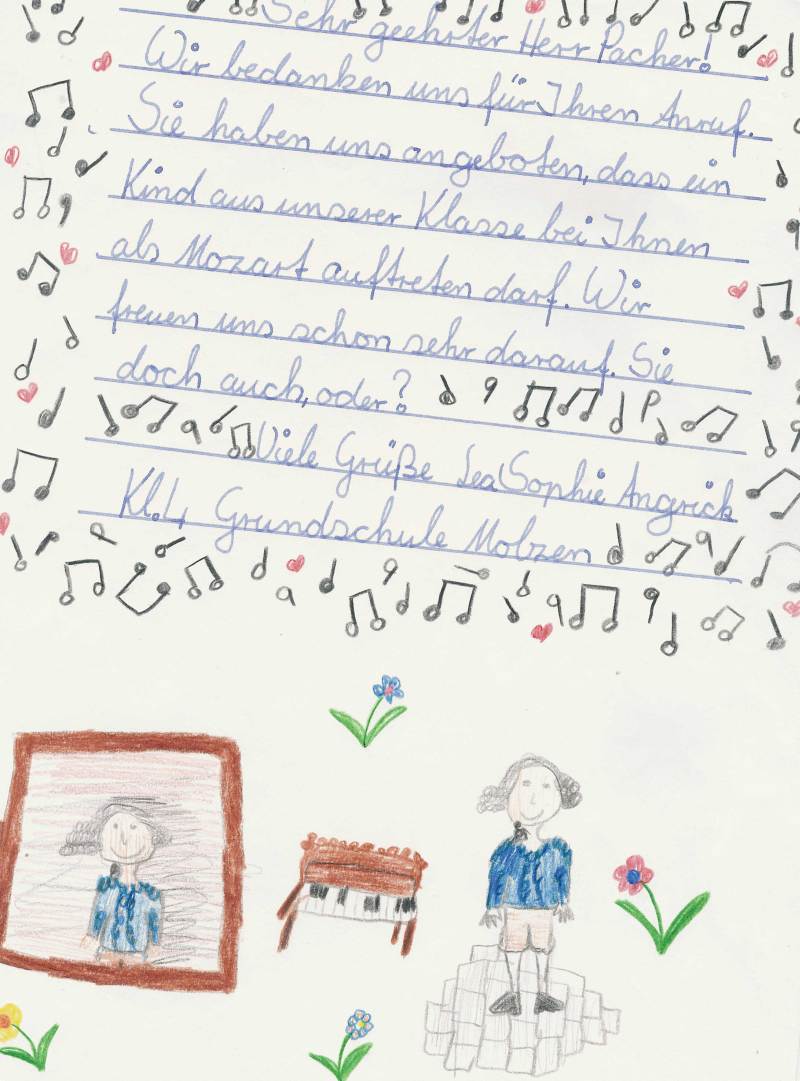 Sehr geehrter Herr Pacher!
Wir bedanken uns für Ihren Anruf.
Sie haben uns angeboten, dass ein
Kind aus unserer Klasse bei Ihnen
als Mozart auftreten darf. Wir
freuen uns schon sehr darauf. Sie
doch auch, oder?
Viele Grüße Lea Sophie Angrick
Kl.4 Grundschule Molzen